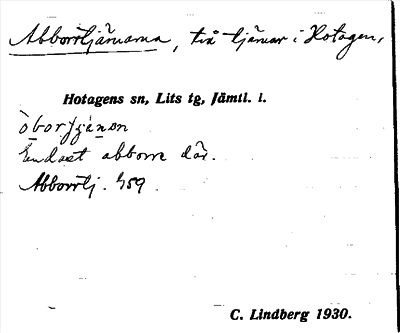 Abborrtjärnarna, två tjärnar i Hotagen,
Hotagens sn, Lits tg, Jämtl. l.
òborʃjæ̀nɑn
Endast abborre där.
Abborrtj. 459.
C. Lindberg 1930.